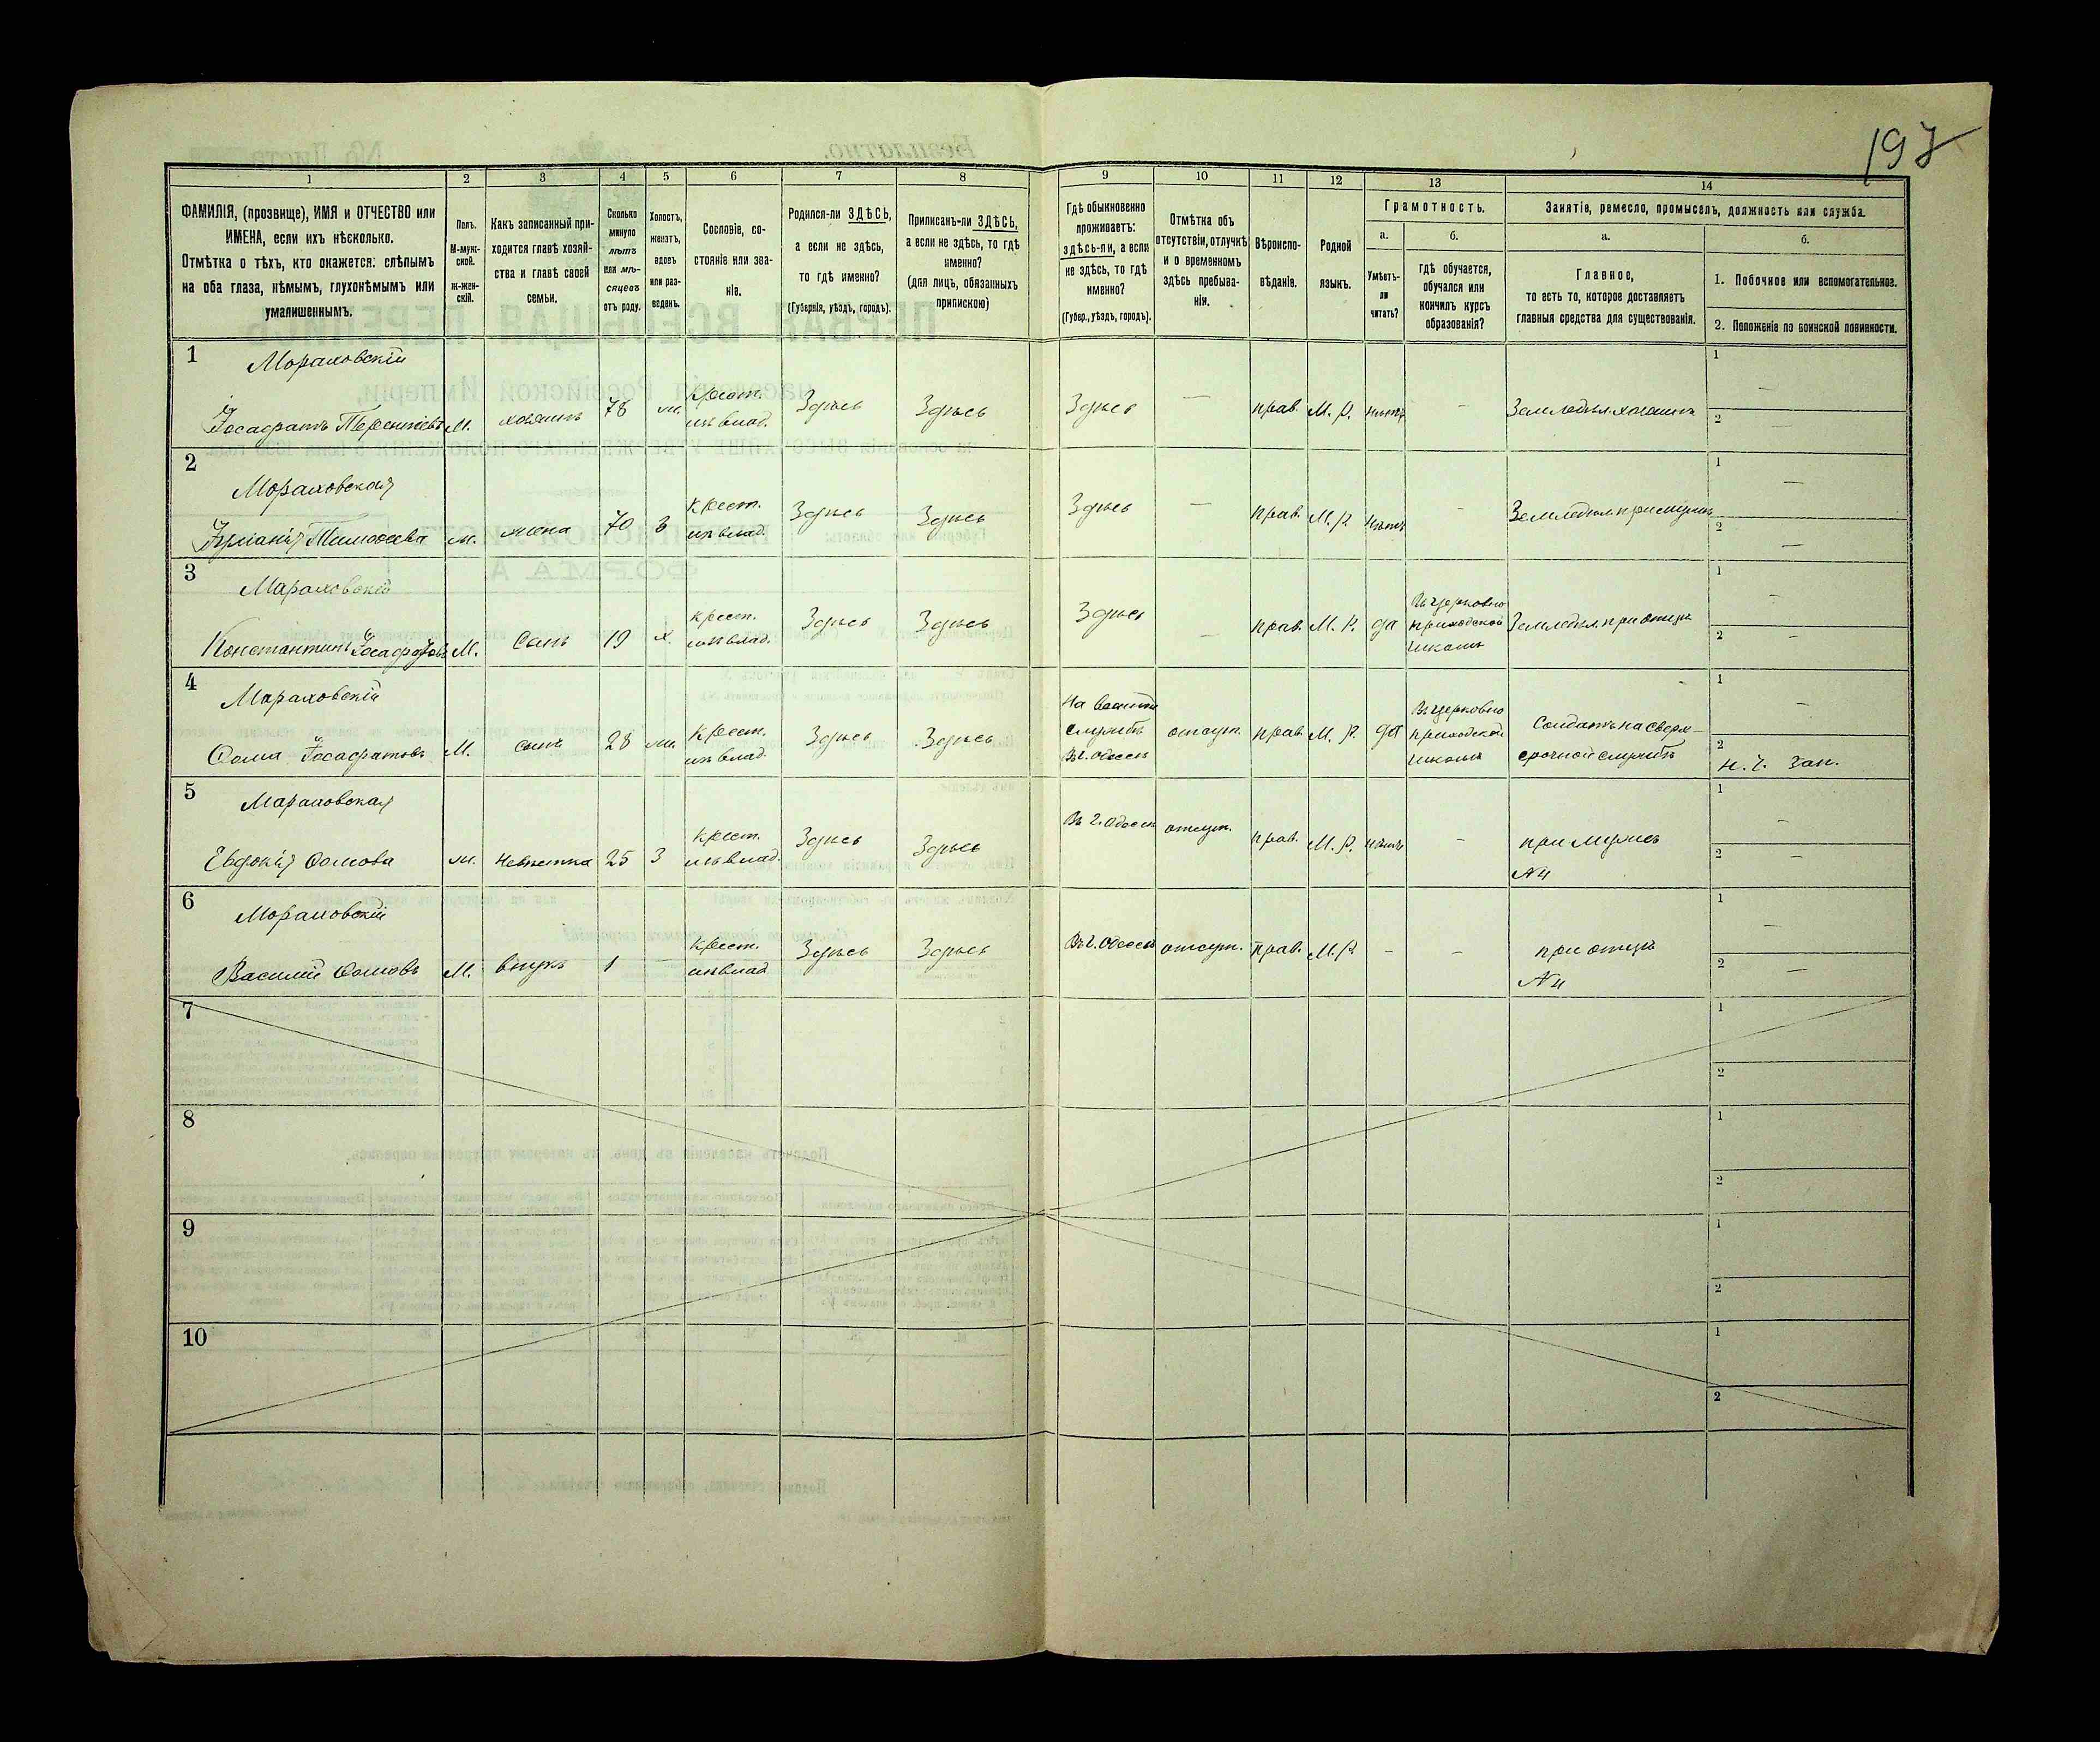 197
1 2 3 4 5 6 7 8 9 10 11 12 13 14
ФАМИЛІЯ, (прозвище), ИМЯ и ОТЧЕСТВО или
ИМЕНА, если ихъ нѣсколько.
Отмѣтка о тѣхъ, кто окажется: слѣпымъ
на оба глаза, нѣмымъ, глухонѣмымъ или
умалишеннымъ.
Полъ.
М-муж-
ской.
Ж-жен-
скій.
Какъ записанный при-
ходится главѣ хозяй-
ства и главѣ своей
семьи.
Сколько
минуло
лѣтъ
или мѣ-
сяцевъ
отъ роду.
Холостъ,
женатъ,
вдовъ
или раз-
веденъ.
Сословіе, со-
стояніе или зва-
ніе.
Родился-ли ЗДѢСЬ,
а если не здѣсь,
то гдѣ именно?
(Губернія, уѣздъ, городъ).
Приписанъ-ли ЗДѢСЬ,
а если не здѣсь, то гдѣ
именно?
(для лицъ, обязанныхъ
припискою)
Гдѣ обыкновенно
проживаетъ:
здѣсь-ли, а если
не здѣсь, то гдѣ
именно?
(Губер., уѣздъ, городъ).
Отмѣтка объ
отсутствіи, отлучкѣ
и о временномъ
здѣсь пребыва-
ніи.
Вѣроиспо-
вѣданіе.
Родной
языкъ.
Грамотность.
а.
Умѣетъ-
ли
читать?
б.
гдѣ обучается,
обучался или
кончилъ курсъ
образованія?
Занятіе, ремесло, промыселъ, должность или служба.
а.
Главное,
то есть то, которое доставляетъ
главныя средства для существованія.
б.
1. Побочное или вспомогательное.
2. Положеніе по воинской повинности.
1
Мораховскій
Іосафатъ Терентіевъ М. хозяинъ 78 ж. Крест. изъ влад. Здѣсь Здѣсь Здѣсь — прав. М. Р. нѣтъ — Земледѣл. хозяинъ
1 —
2 —
2
Мораховская
Тимофеева ж. жена 70 З Крест. изъ влад. Здѣсь Здѣсь Здѣсь — прав. М. Р. нѣтъ — Земледѣл. при мужѣ
1 —
2 —
3
Мараховскій
Константинъ Іосафатовъ М. Сынъ 19 х Крест. изъ влад. Здѣсь Здѣсь Здѣсь — прав. М. Р. да Въ церковно приходской школѣ Земледѣл. при отцѣ
1 —
2 —
4
Мараховскій
Ѳома Іосафатовъ М. сынъ 28 ж. Крест. изъ влад. Здѣсь Здѣсь На военной службѣ Въ г. Одессѣ отсут. прав. М. Р. да Въ церковно приходской школѣ Солдатъ на сверх-
срочной службѣ
1 —
2 Н. Ч. Зап.
5
Мараховская
Евдокія Ѳомова ж. Невѣстка 25 З Крест. изъ влад. Здѣсь Здѣсь Въ г. Одессѣ отсут. прав. М. Р. нѣтъ — при мужѣ
№ 4
1 —
2 —
6
Мораховскій
Василій Ѳомовъ М. Внукъ 1 — Крест. изъ влад. Здѣсь Здѣсь Въ г. Одессѣ отсут. прав. М. Р. — — при отцѣ
№ 4
1 —
2 —
7
1
2
8
1
2
9
1
2
10
1
2